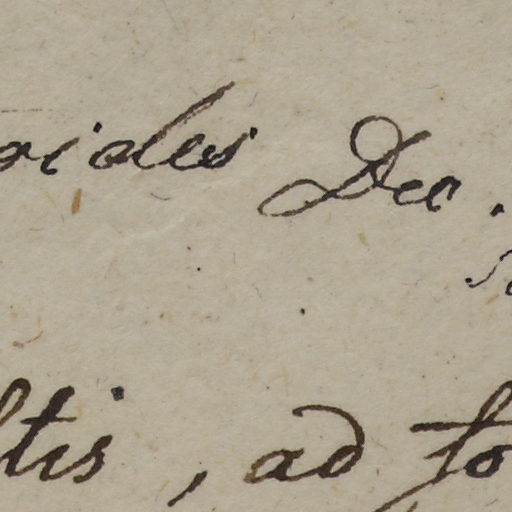 oides Dec.
ltis, ad fo